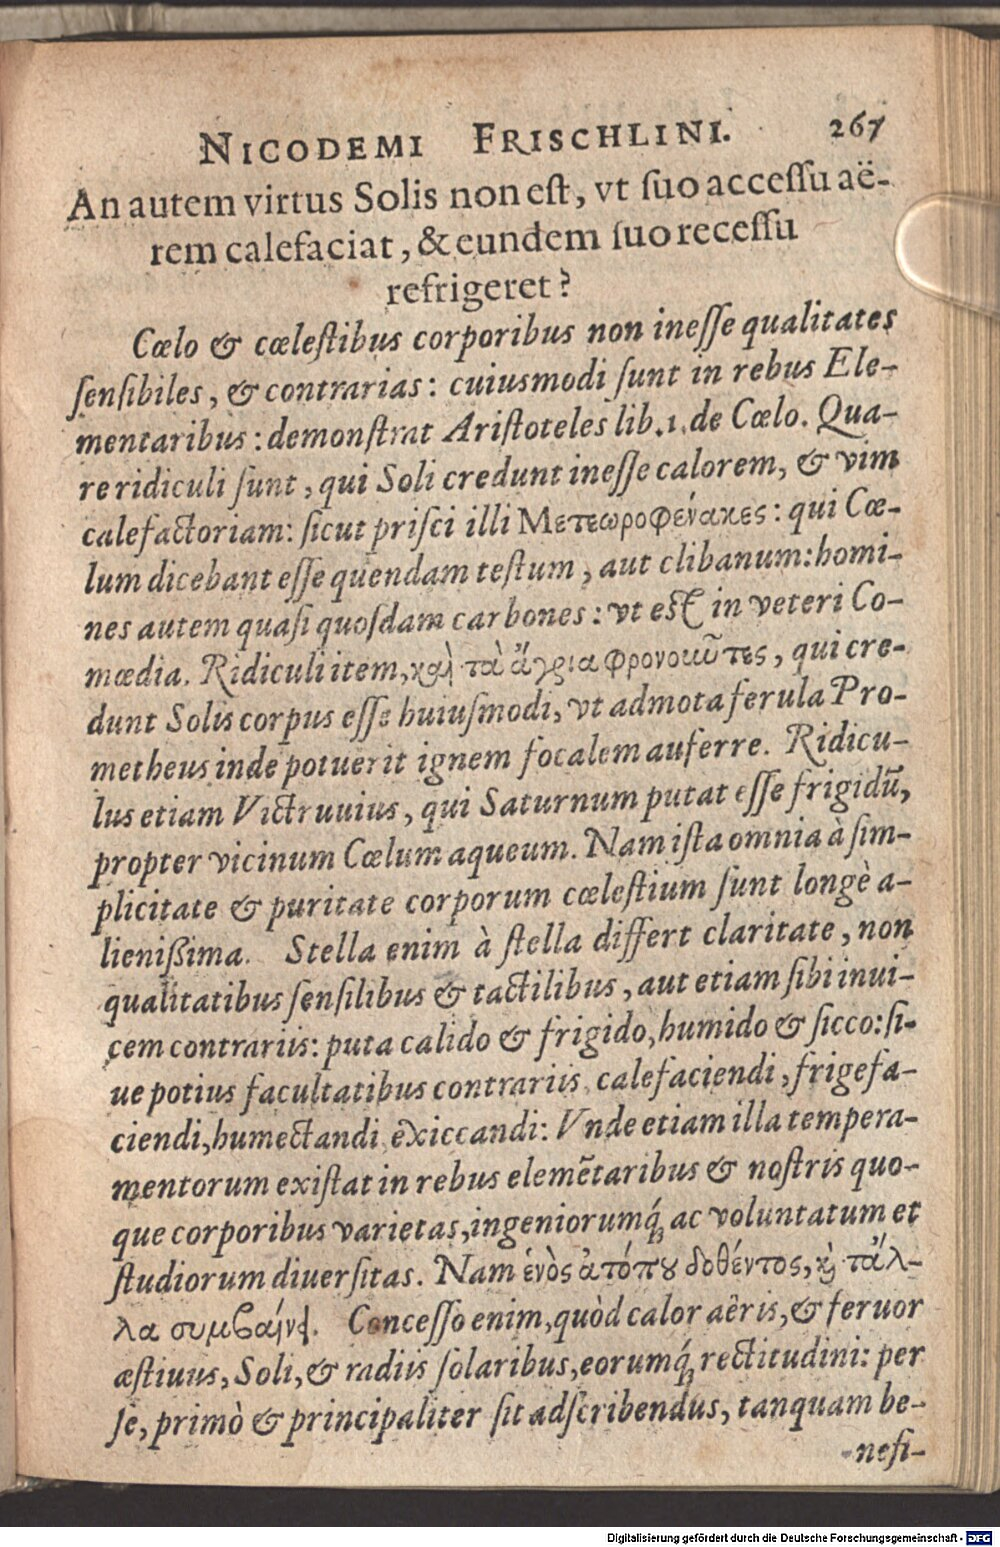 NICODEMI FRISCHLINI. 267
An autem virtus Solis non est, vt suo accessu aë-
rem calefaciat, & eundem suo recessu
refrigeret?
Cœlo & cœlestibus corporibus non inesse qualitates
sensibiles, & contrarias: cuiusmodi sunt in rebus Ele-
mentaribus: demonstrat Aristoteles lib. 1. de Cœlo. Qua-
re ridiculi sunt, qui Soli credunt inesse calorem, & vim
calefactoriam: sicut prisci illi Μετεωροφένακες: qui Cœ-
lum dicebant esse quendam testum, aut clibanum: homi-
nes autem quasi quosdam carbones: vt est in veteri Co-
mœdia. Ridiculi item, καὶ τὰ ἄγρια φρονοῦντες, qui cre-
dunt Solis corpus esse huiusmodi, vt admota ferula Pro-
metheus inde potuerit ignem focalem auferre. Ridicu-
lus etiam Victruuius, qui Saturnum putat esse frigidũ,
propter vicinum Cœlum aqueum. Nam ista omnia à sim-
plicitate & puritate corporum cœlestium sunt longè a-
lienißima. Stella enim à stella differt claritate, non
qualitatibus sensilibus & tactilibus, aut etiam sibi inui-
cem contrariis: puta calido & frigido, humido & sicco: si-
ue potius facultatibus contrariis, calefaciendi, frigefa-
ciendi, humectandi, exiccandi: Vnde etiam illa tempera-
mentorum existat in rebus elemẽtaribus & nostris quo-
que corporibus varietas, ingeniorumq́; ac voluntatum et
studiorum diuersitas. Nam ἑνὸς ἀτόπου δοθέντος, καὶ τἄλ-
λα συμβαίνει. Concesso enim, quòd calor aëris, & feruor
æstiuus, Soli, & radiis solaribus, eorumq́; rectitudini: per
se, primò & principaliter sit adscribendus, tanquam be-
nefi-
Digitalisierung gefördert durch die Deutsche Forschungsgemeinschaft - DFG